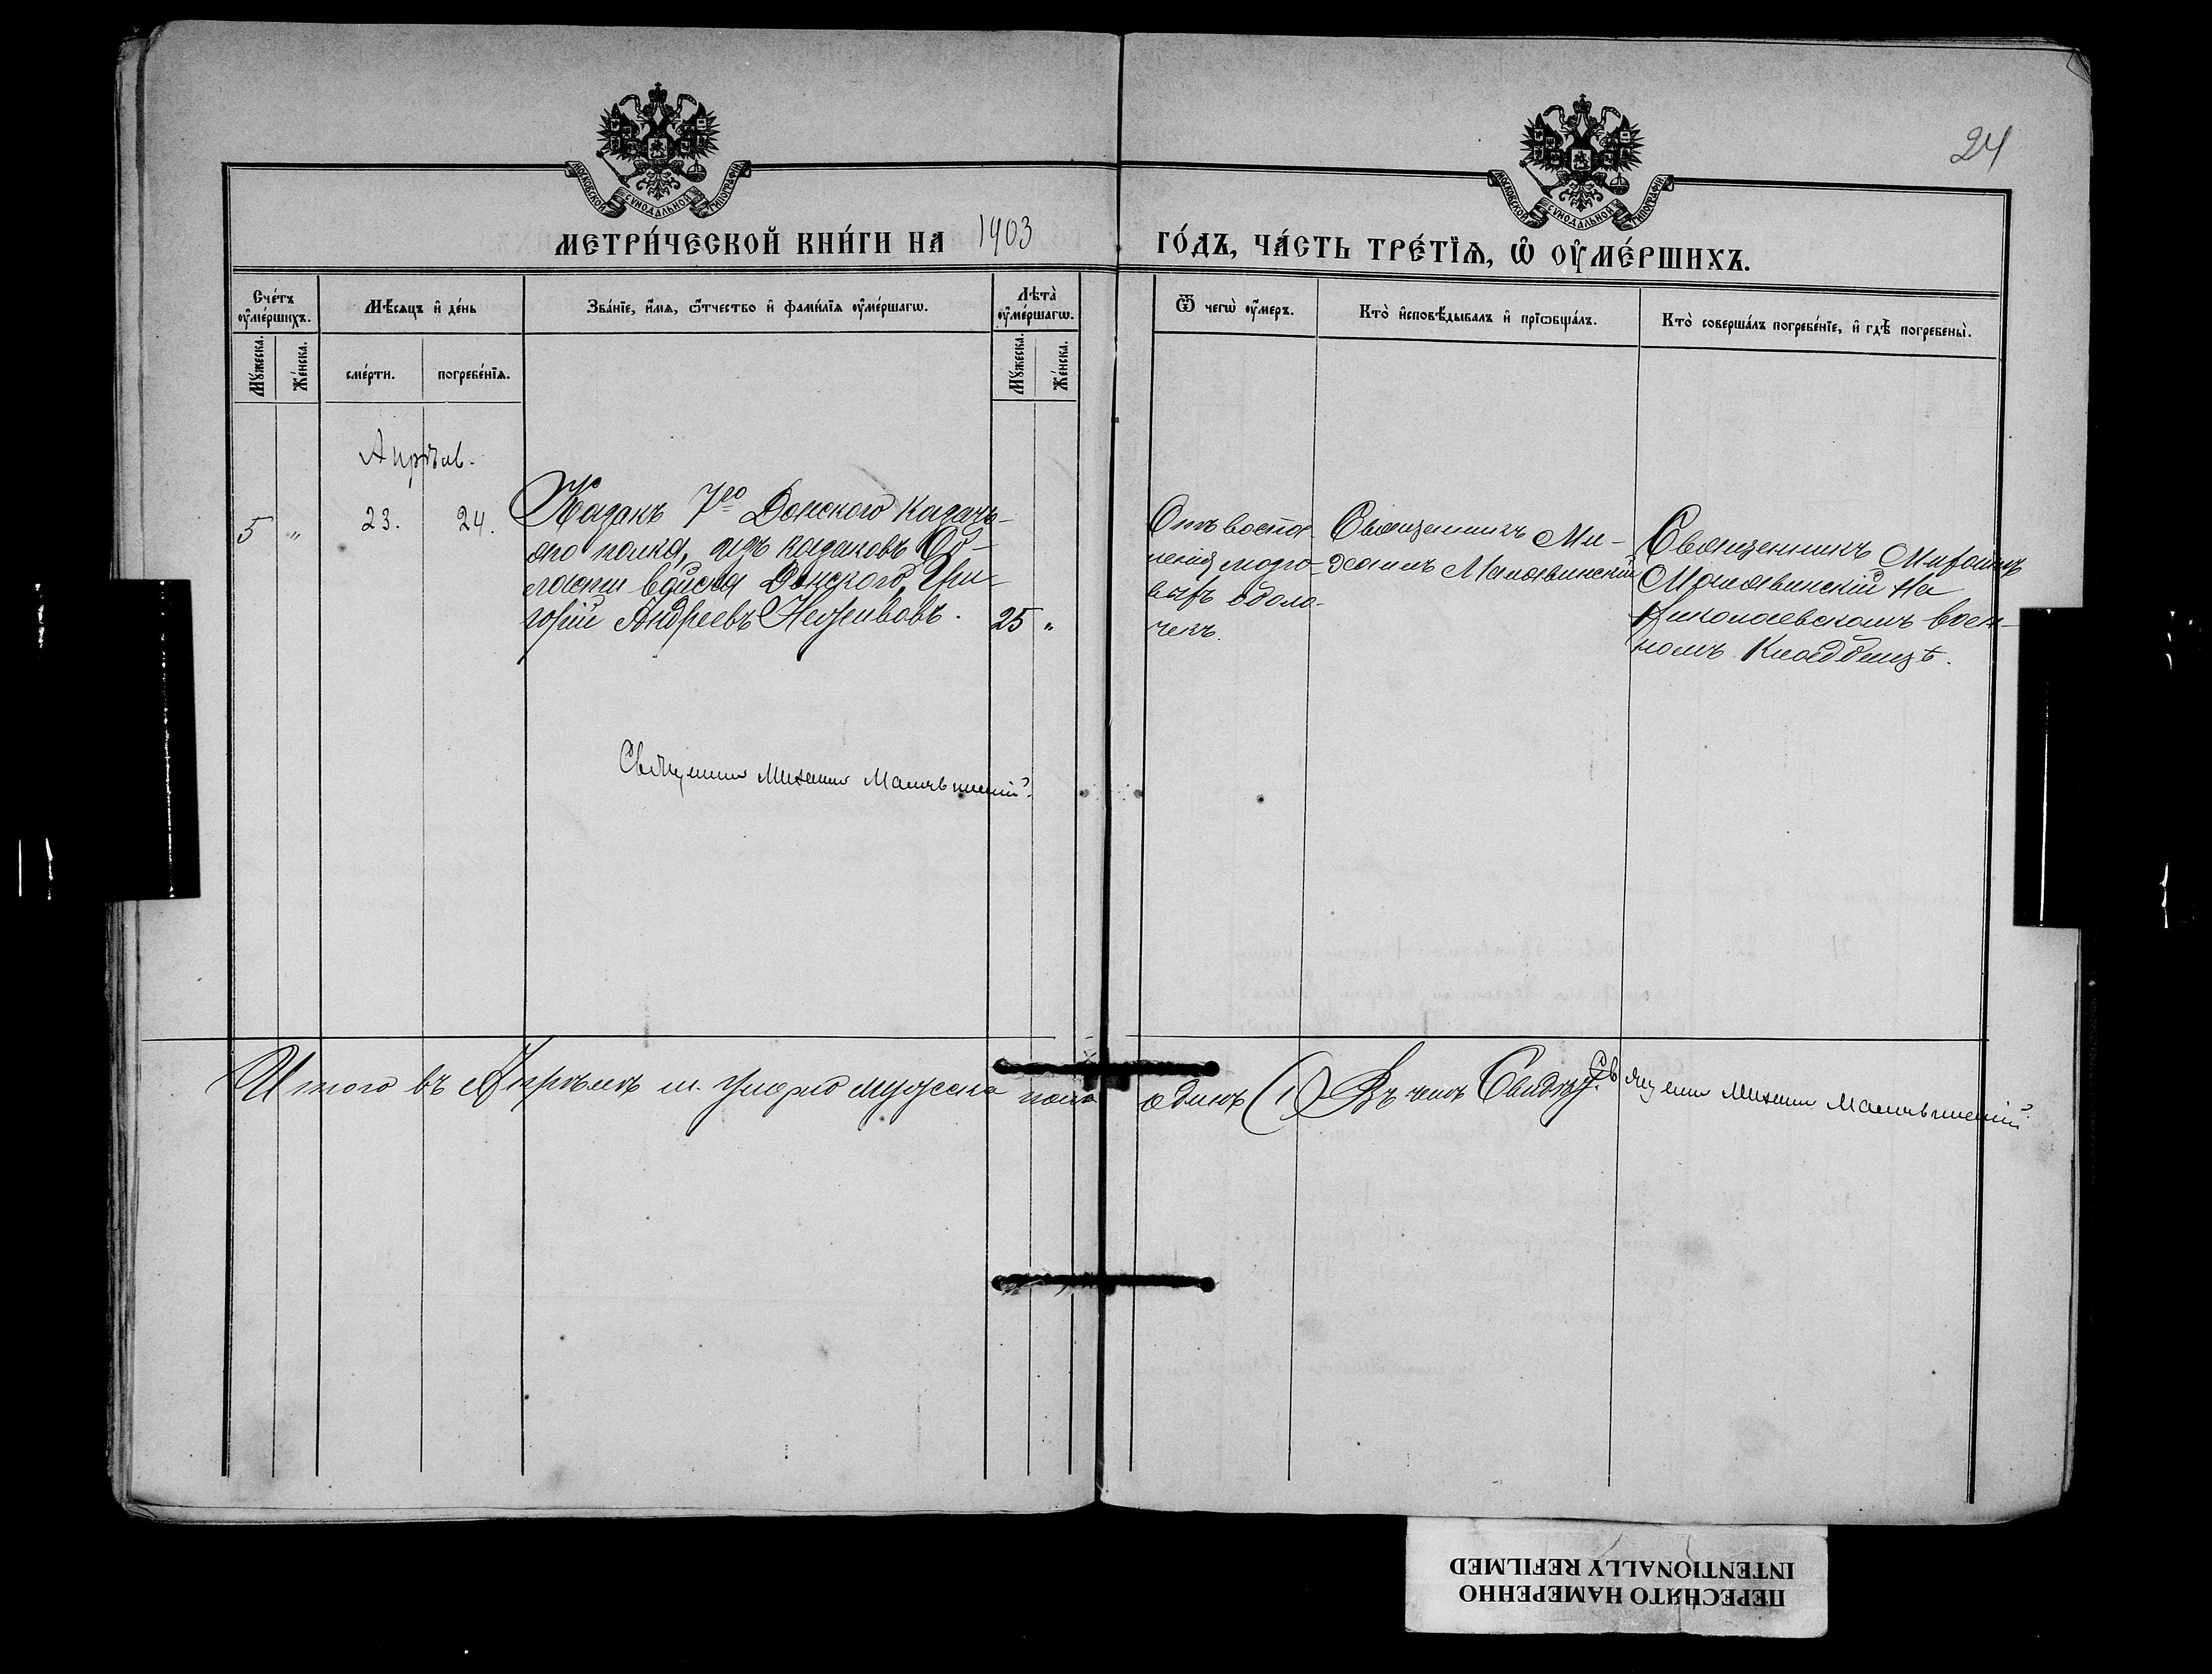 24
МОСКОВСКОЙ СѴНОДАЛЬНОЙ ТИПОГРАФІИ
МОСКОВСКОЙ СѴНОДАЛЬНОЙ ТИПОГРАФІИ
МЕТРИ́ЧЕСКОЙ КНИ́ГИ НА 1903
ГО́ДЪ, ЧА́СТЬ ТРЕ́ТЇѦ, Ѡ҆ ОУ҆МЕ́РШИХЪ.
Сче́тъ оу҆ме́ршихъ.
Мѣ́сѧцъ и҆ де́нь
Зва́нїе, и҆́мѧ, ѻ҆́тчество и҆ фами́лїѧ оу҆ме́ршагѡ.
Лѣта̀ оу҆ме́ршагѡ.
Ѿ чегѡ̀ оу҆́меръ.
Кто̀ и҆сповѣ́дывалъ и҆ прїѡбща́лъ.
Кто̀ соверша́лъ погребе́нїе, и҆ гдѣ̀ погребены̀.
Мꙋ́жеска.
Же́нска.
сме́рти.
погребе́нїѧ.
Мꙋ́жеска.
Же́нска.
Апрѣль.
5 " 23. 24.
Казакъ 7го Донского казачь-
яго полка, изъ казаковъ Об-
ласти войска Донского, Гри-
горій Андреевъ . 25 "
Отъ воспа-
ленія мозго-
выхъ оболо-
чекъ.
Священникъ Ми-
хаилъ Малявинскій
Священникъ Михаилъ
Малявинскій На
Николаевскомъ воен-
номъ Кладбищѣ.
Священникъ Михаилъ Малявинскій
Итого въ Апрѣлѣ м. умерло мужеска пола одинъ (1) Въ чемъ Свидѣт. Священникъ Михаилъ Малявинскій
ПЕРЕСНЯТО НАМЕРЕННО
INTENTIONALLY REFILMED